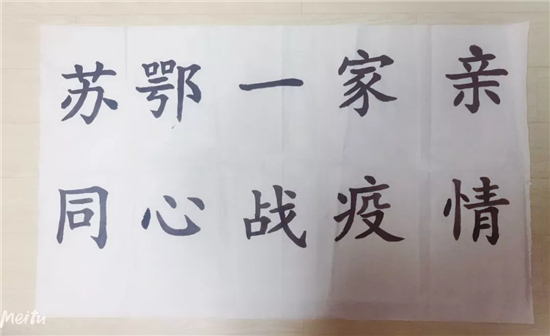 苏鄂一家亲
同心战疫情
Meitu